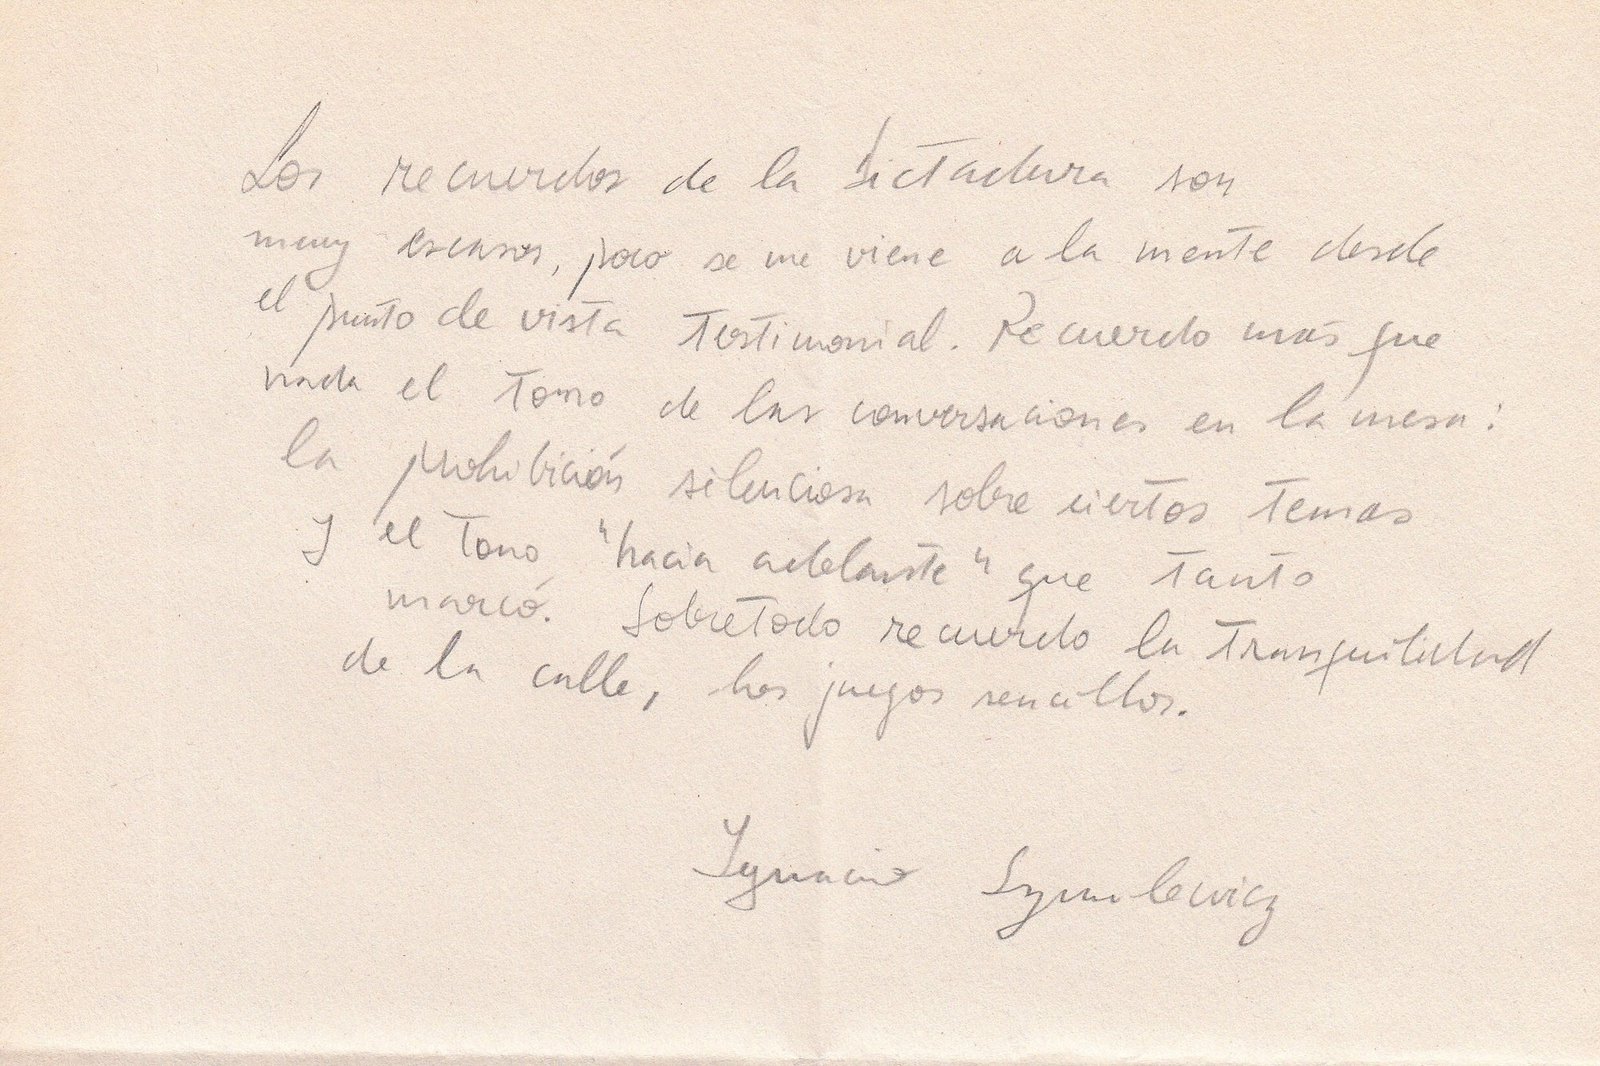 Los recuerdos de la dictadura son
muy escasos, poco se me viene a la mente desde
el punto de vista testimonial. Recuerdo más que
nada el tono de las conversaciones en la mesa:
la prohibición silenciosa sobre ciertos temas
y el tono "hacia adelante" que tanto
marcó. Sobretodo recuerdo la tranquilidad
de la calle, los juegos sencillos.
Ignacio Szmulewicz